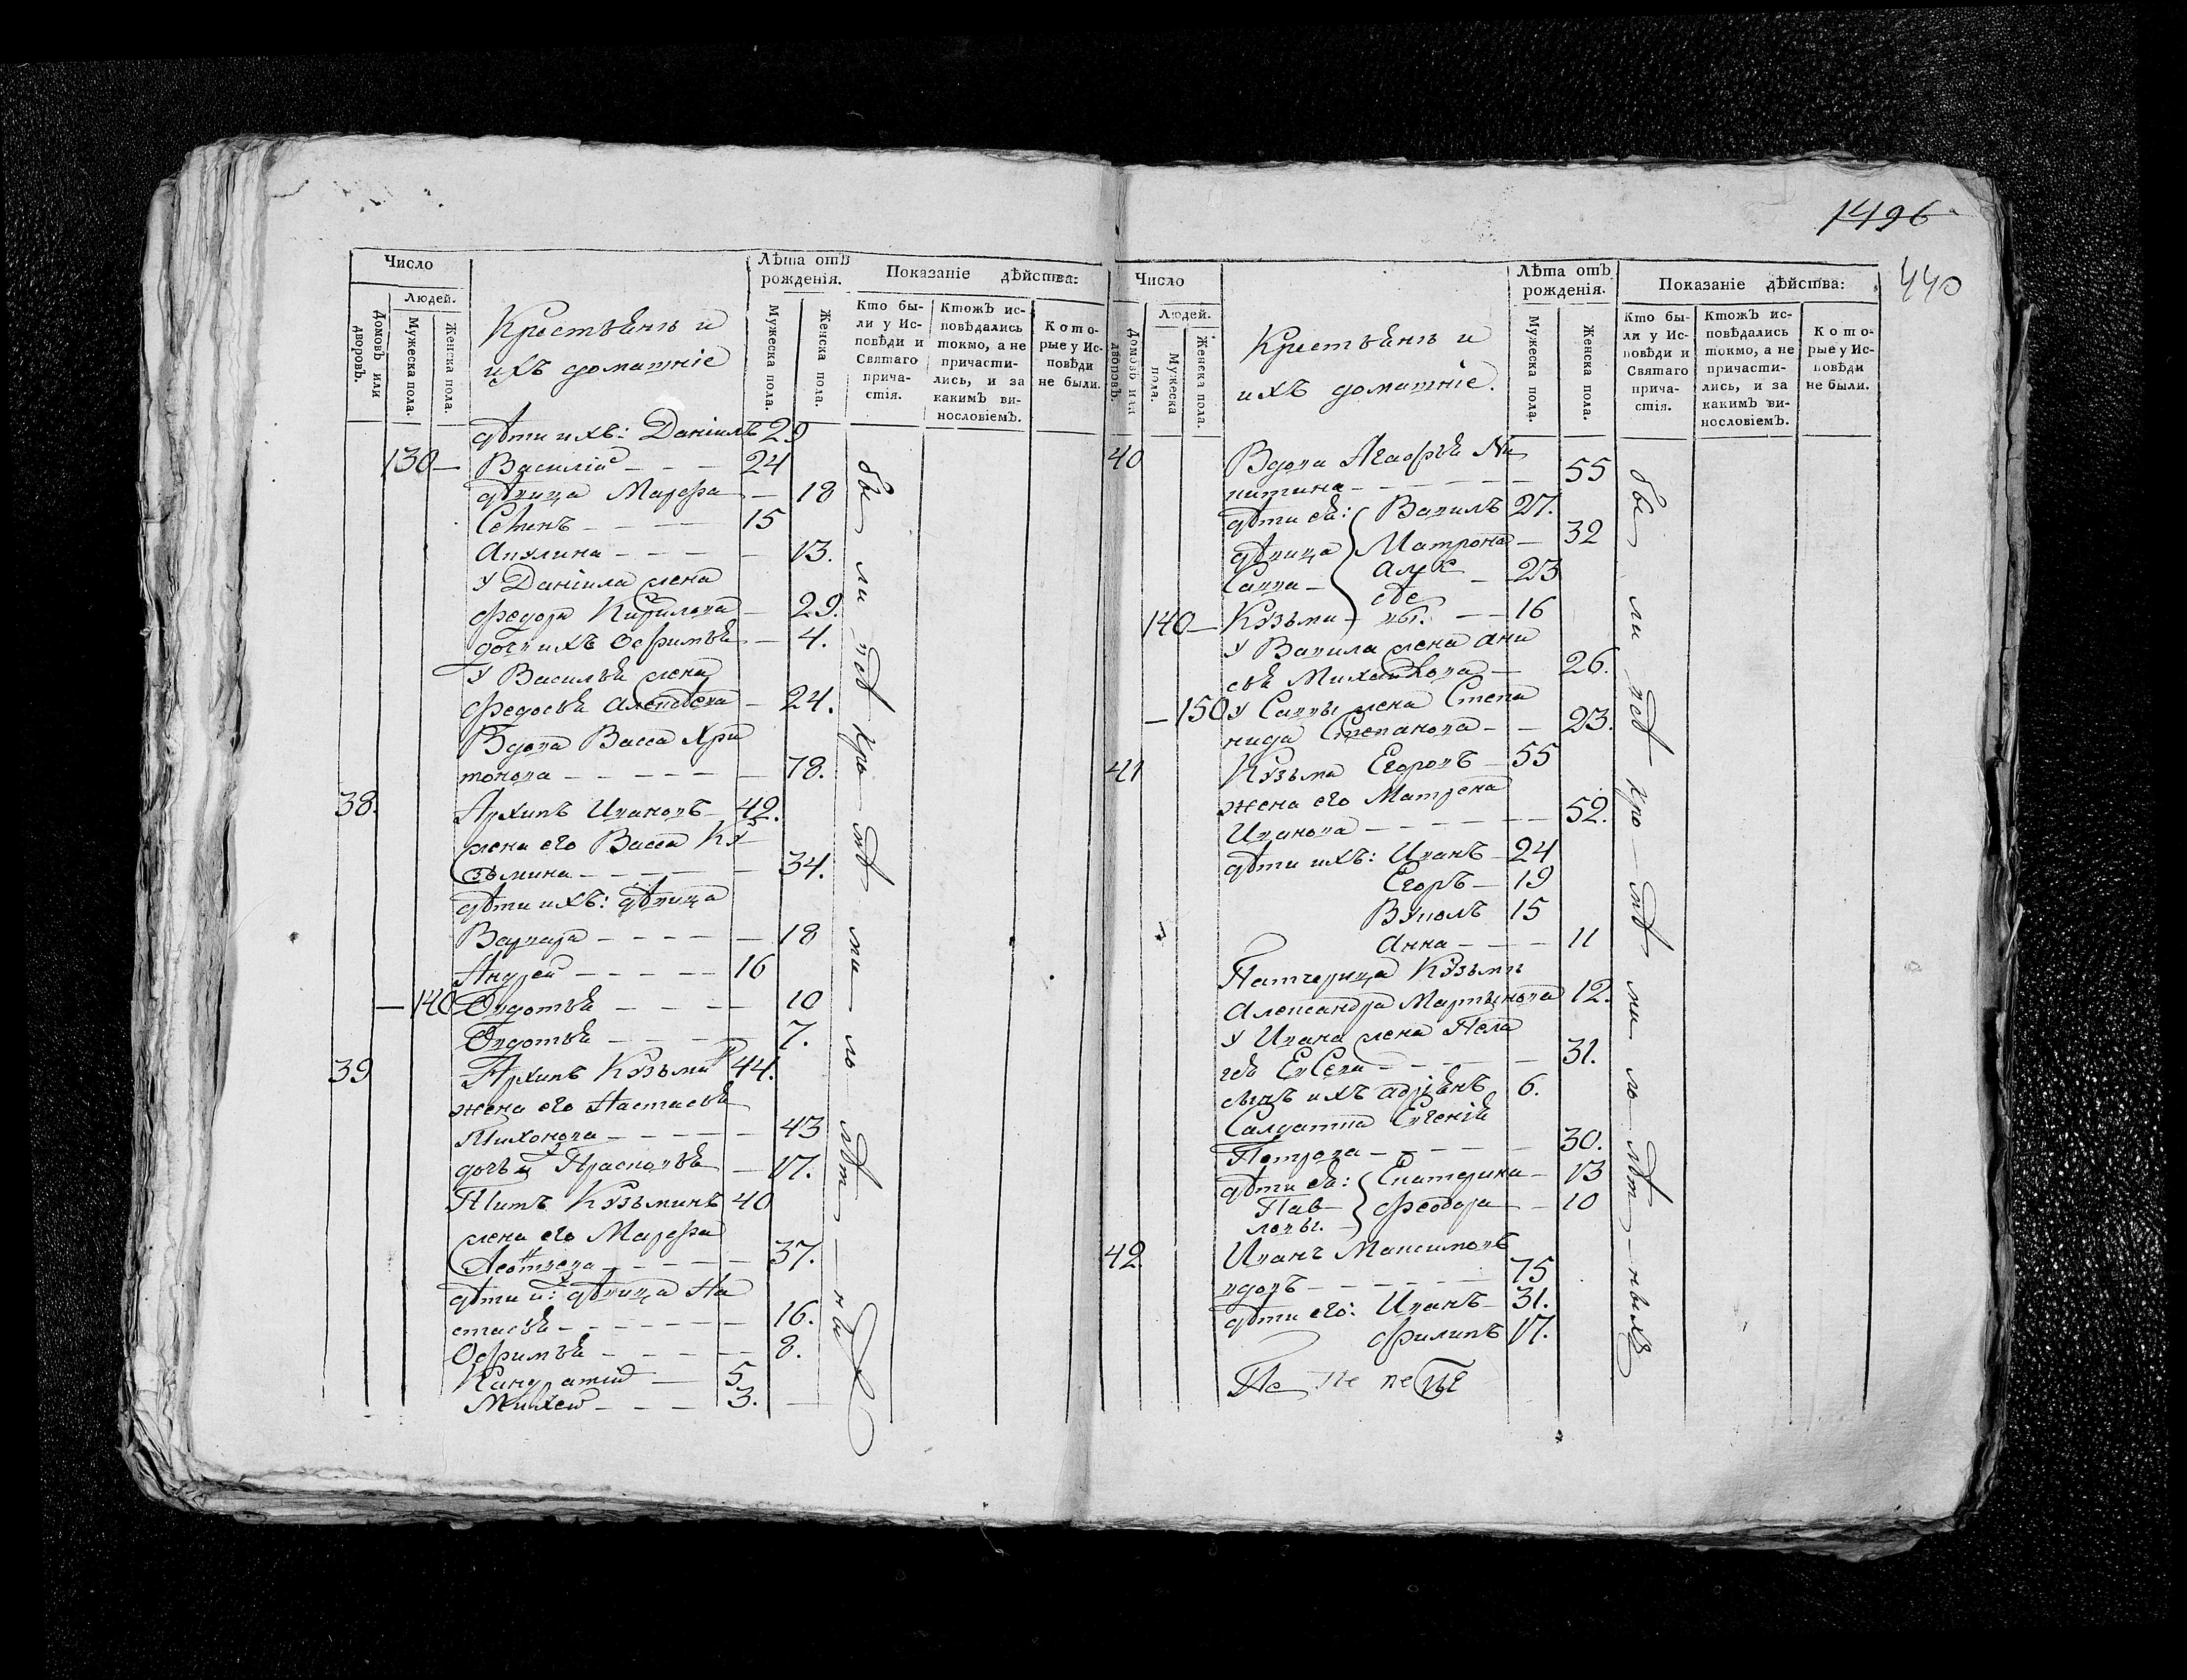 1496
440
Число
Людей.
Домовъ или дворовъ.
Мужеска пола.
Женска пола.
Крестьянъ и
ихъ домашніе
Лѣта отъ рожденія.
Мужеска пола.
Женска пола.
Показаніе дѣйства:
Кто бы-
ли у Ис-
повѣди и
Святаго
прича-
стія.
Ктожъ ис-
повѣдались
токмо, а не
причасти-
лись, и за
какимъ ви-
нословіемъ.
Кото-
рые у Ис-
повѣди
не были.
дѣти ихъ: Даніилъ 29
130 — Василій - - - 24
дѣвица Марѳа — 18
Семенъ - - - 15
Акулина - - - — 13.
У Даніила жена
Федора Кирилова — 29.
дочь ихъ Ефимья — 4.
У Василья жена
Федосья — 24.
Вдова Васса Хри
тонова - - - - - 78.
38. Архипъ Ивановъ — 42.
жена его Васса Ку
зьмина - - - - 34.
дѣти ихъ: дѣвица
Варвара - - - - — 18
Андрей - - - - - 16
— 140 Овдотья - - - 10
Овдотья - - - 7.
39 Архипъ Кузьмин 44.
жена его Настасья
Тихонова - - - - 43
дочь их Прасковья — 17.
Титъ Кузьминъ 40
жена его Марѳа
- - - - 37.
дѣти их: дѣвица На
стасья - - - - - - 16.
Офимья - - - - 8.
Кандратій — 5
Михей - - - 3.
Число
Людей.
Домовъ или дворовъ.
Мужеска пола.
Женска пола.
Крестьянъ и
ихъ домашніе.
Лѣта отъ рожденія.
Мужеска пола.
Женска пола.
Показаніе дѣйства:
Кто бы-
ли у Ис-
повѣди и
Святаго
прича-
стія.
Ктожъ ис-
повѣдались
токмо, а не
причасти-
лись, и за
какимъ ви-
нословіемъ.
Кото-
рые у Ис-
повѣди
не были.
40 Вдова Агафья Ни
китина - - - - - - 55
дѣти ея: Вавилъ 27.
дѣвица Матрона — 32
Савва — 23
140 — Кузьма — 16
У Вавила жена Ани
сья Михайлова — 26.
— 150 У Саввы жена Степа
нида Степанова - - 23.
41 Кузьма Егоровъ — 55
жена его Матрена
Иванова - - - - - - 52.
дѣти ихъ: Иванъ — 24
Егоръ — 19
Вуколъ 15
Анна - - - 11
Патчерица Кузьмы
Александра Мартынова 12.
У Ивана жена Пела
гея - - - - 31.
сынъ ихъ Адріянъ 6.
Салдатка Евгенія
Петрова - - - - - 30.
дѣти ея: Екатерина — 13
Пав-
ловы. Феодора - - 10
42. Иванъ Максимовъ
вдовъ - - - - - - 75
дѣти его: Иванъ — 31.
Филипъ 17.